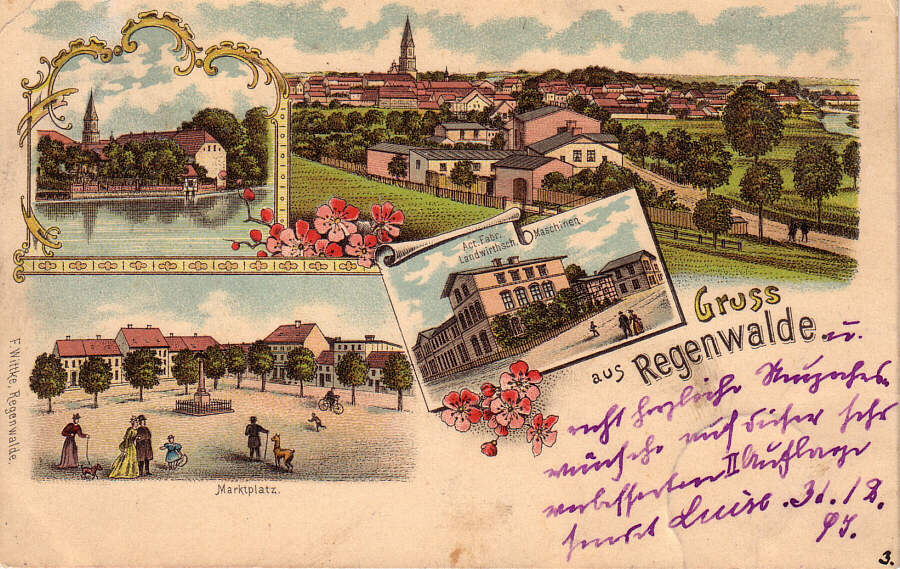 Act. Fabr.
Landwirthsch. Maschinen.
Gruss
aus Regenwalde u.
recht herzliche Neujahrs-
wünsche auf dieser sehr
verbesserten II Auflage
sendet Luise. 31.12.
97.
F. Wittke, Regenwalde.
Marktplatz.
3.